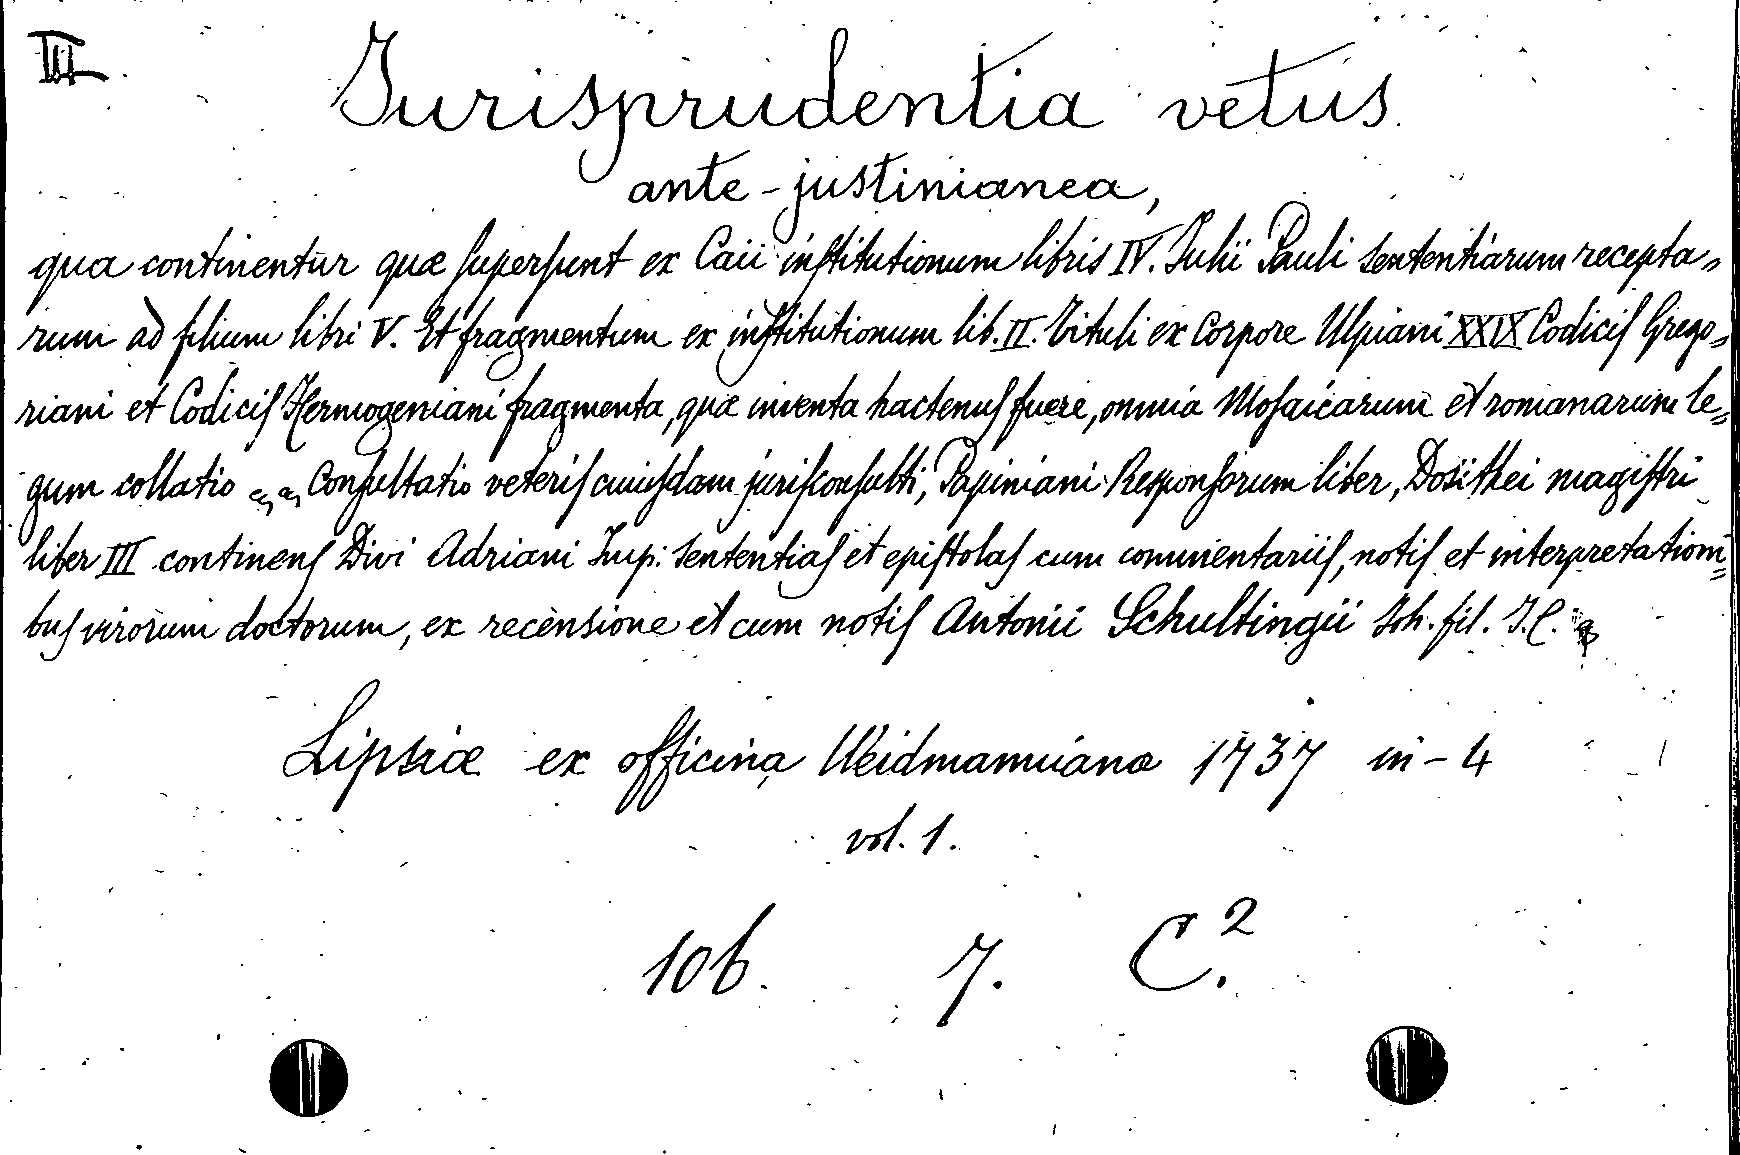 III
Jurisprudentia vetus
ante-justinianea,
qua continentur quæ superſunt ex Caii inſtitutionum libris IV. Julii Pauli sententiarum recepta=
rum ad filium libri V. Et fragmentum ex inſtitutionum lib. II. Tituli ex Corpore Ulpiani XXIX Codiciſ Grego=
riani et Codiciſ Hermogeniani fragmenta, quæ inventa hactenuſ fuere, omnia Moſaicarum et romanarum le=
gum collatio Conſultatio veteriſ cuiuſdam juriſconſulti, Papiniani Responſorum liber, Dosithei magiſtri
liber III continenſ Divi Adriani Imp: sententiaſ et epiſtolaſ cum commentariiſ, notiſ et interpretationi=
buſ virorum doctorum, ex recensione et cum notiſ Antonii Schultingii Joh. fil. J.C.
Lipsiæ ex officina Weidmanniana 1737 in-4
vol. 1.
106. 7. C.²